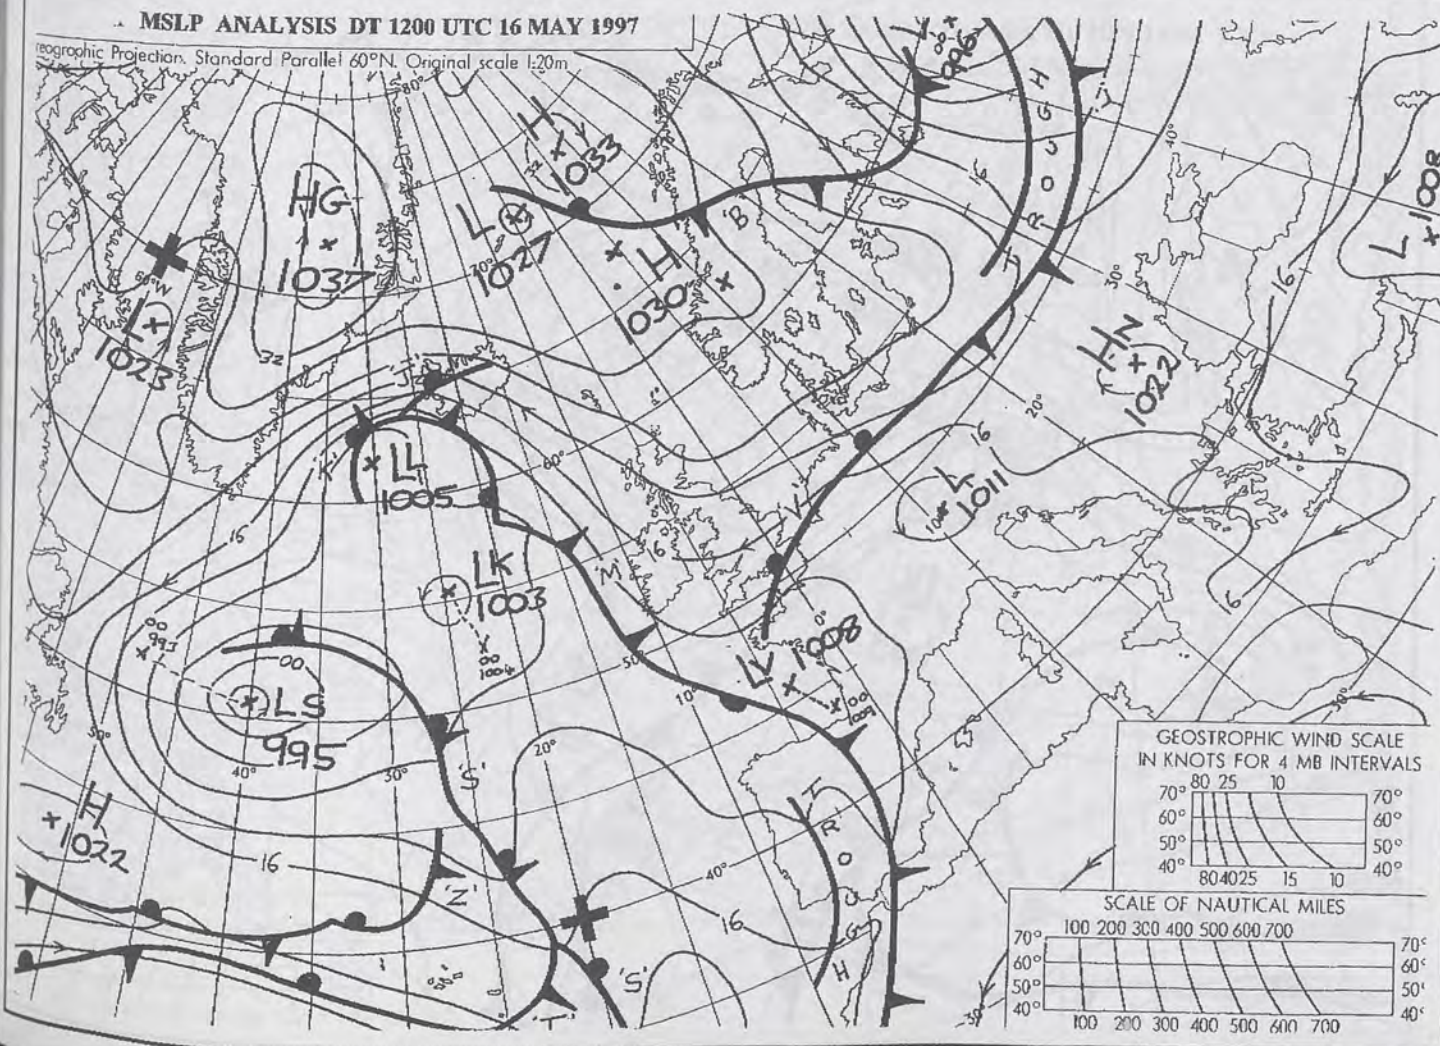 MSLP ANALYSIS DT 1200 UTC 16 MAY 1997
reographic Projection. Standard Parallel 60°N. Original scale 1:20m
80°
996
H
1033
32
HG
1037
L
1027
70°
'B'
H
1030
TROUGH
16
40°
L
1008
16
60°W
L
1023
32
'J'
30°
HN
1022
20°
16
L
1011
'K'
LL
1005
60°
'V'
16
16
'M'
LK
1003
00
1004
6
00
993
00
LS
995
50°
10°
0°
LV
1008
00
1009
50°
40°
30°
20°
'S'
H
1022
16
'Z'
40°
16
TROUGH
'S'
'T'
30°
30°
GEOSTROPHIC WIND SCALE
IN KNOTS FOR 4 MB INTERVALS
80 25 10
70° 70°
60° 60°
50° 50°
40° 40°
80 40 25 15 10
SCALE OF NAUTICAL MILES
100 200 300 400 500 600 700
70° 70°
60° 60°
50° 50°
40° 40°
100 200 300 400 500 600 700